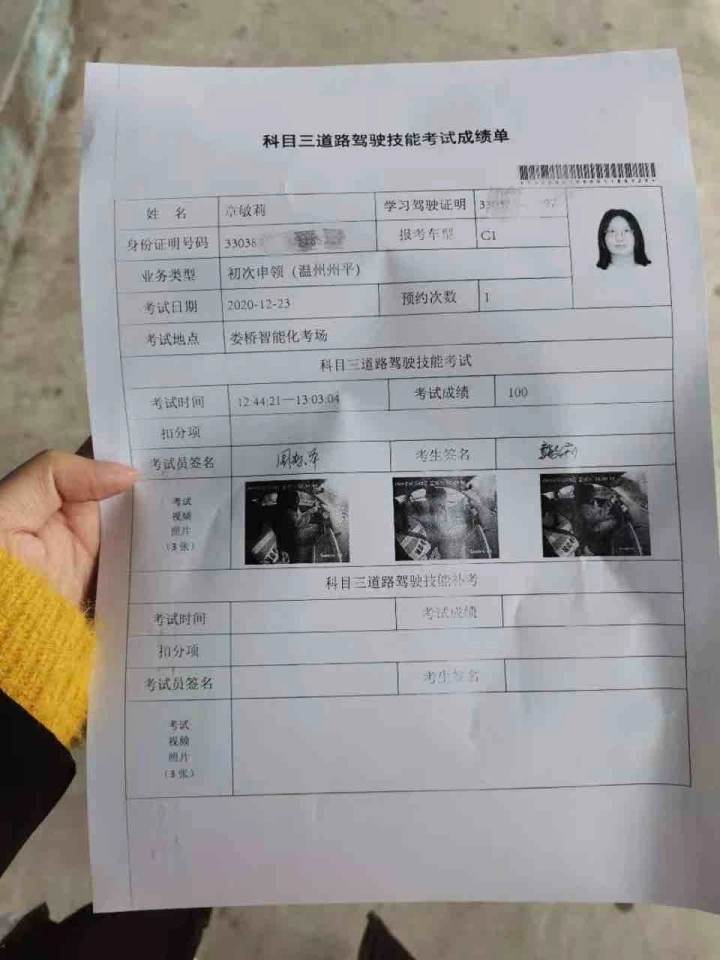 科目三道路驾驶技能考试成绩单
姓 名 章敏莉 学习驾驶证明
身份证明号码 33038 报考车型 C1
业务类型 初次申领（温州州平）
考试日期 2020-12-23 预约次数 1
考试地点 娄桥智能化考场
科目三道路驾驶技能考试
考试时间 12:44:21—13:03:04 考试成绩 100
扣分项
考试员签名 考生签名
考试
视频
照片
（3张）
科目三道路驾驶技能补考
考试时间 考试成绩
扣分项
考试员签名 考生签名
考试
视频
照片
（3张）